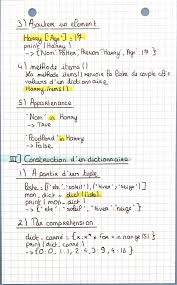 3) Ajouter un élément
Harry ['Age'] = 17
print (Harry)
-> {'Nom': Potter, 'Prenom': 'Harry', 'Age': 17}
4) méthode items()
La méthode items() renvoie la liste de couple clés
valeurs d'un dictionnaire.
Harry.items()
5) Appartenance
'Nom' in Harry
-> True
'Poudlard' in Harry
-> False
III) Construction d'un dictionnaire
1) A partir d'un tuple
liste = [('été', 'soleil'), ('hiver', 'neige')]
mon_dict = dict(liste)
print (mon_dict)
-> {'été': 'soleil', 'hiver': 'neige'}
2) Par compréhension
dict_carré = {x: x**2 for x in range(5)}
print (dict_carré)
-> {0:0, 1:1, 2:4, 3:9, 4:16}